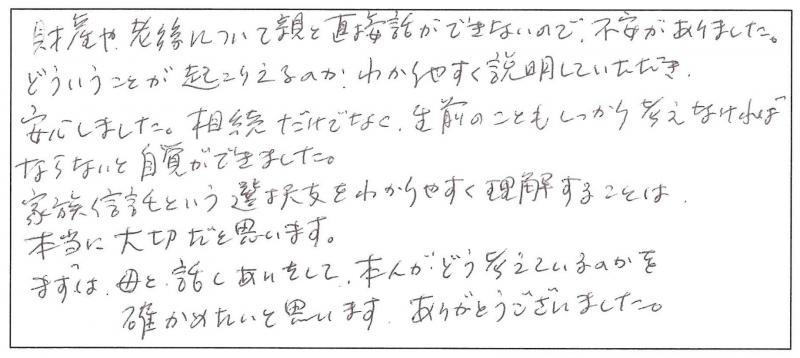 財産や老後について親と直接話ができないので、不安がありました。
どういうことが起こりえるのか、わかりやすく説明していただき、
安心しました。相続だけでなく、生前のこともしっかり考えなければ
ならないと自覚ができました。
家族信託という選択支をわかりやすく理解することは、
本当に大切だと思います。
まずは、母と話しあいをして、本人がどう考えているのかを
確かめたいと思います。ありがとうございました。